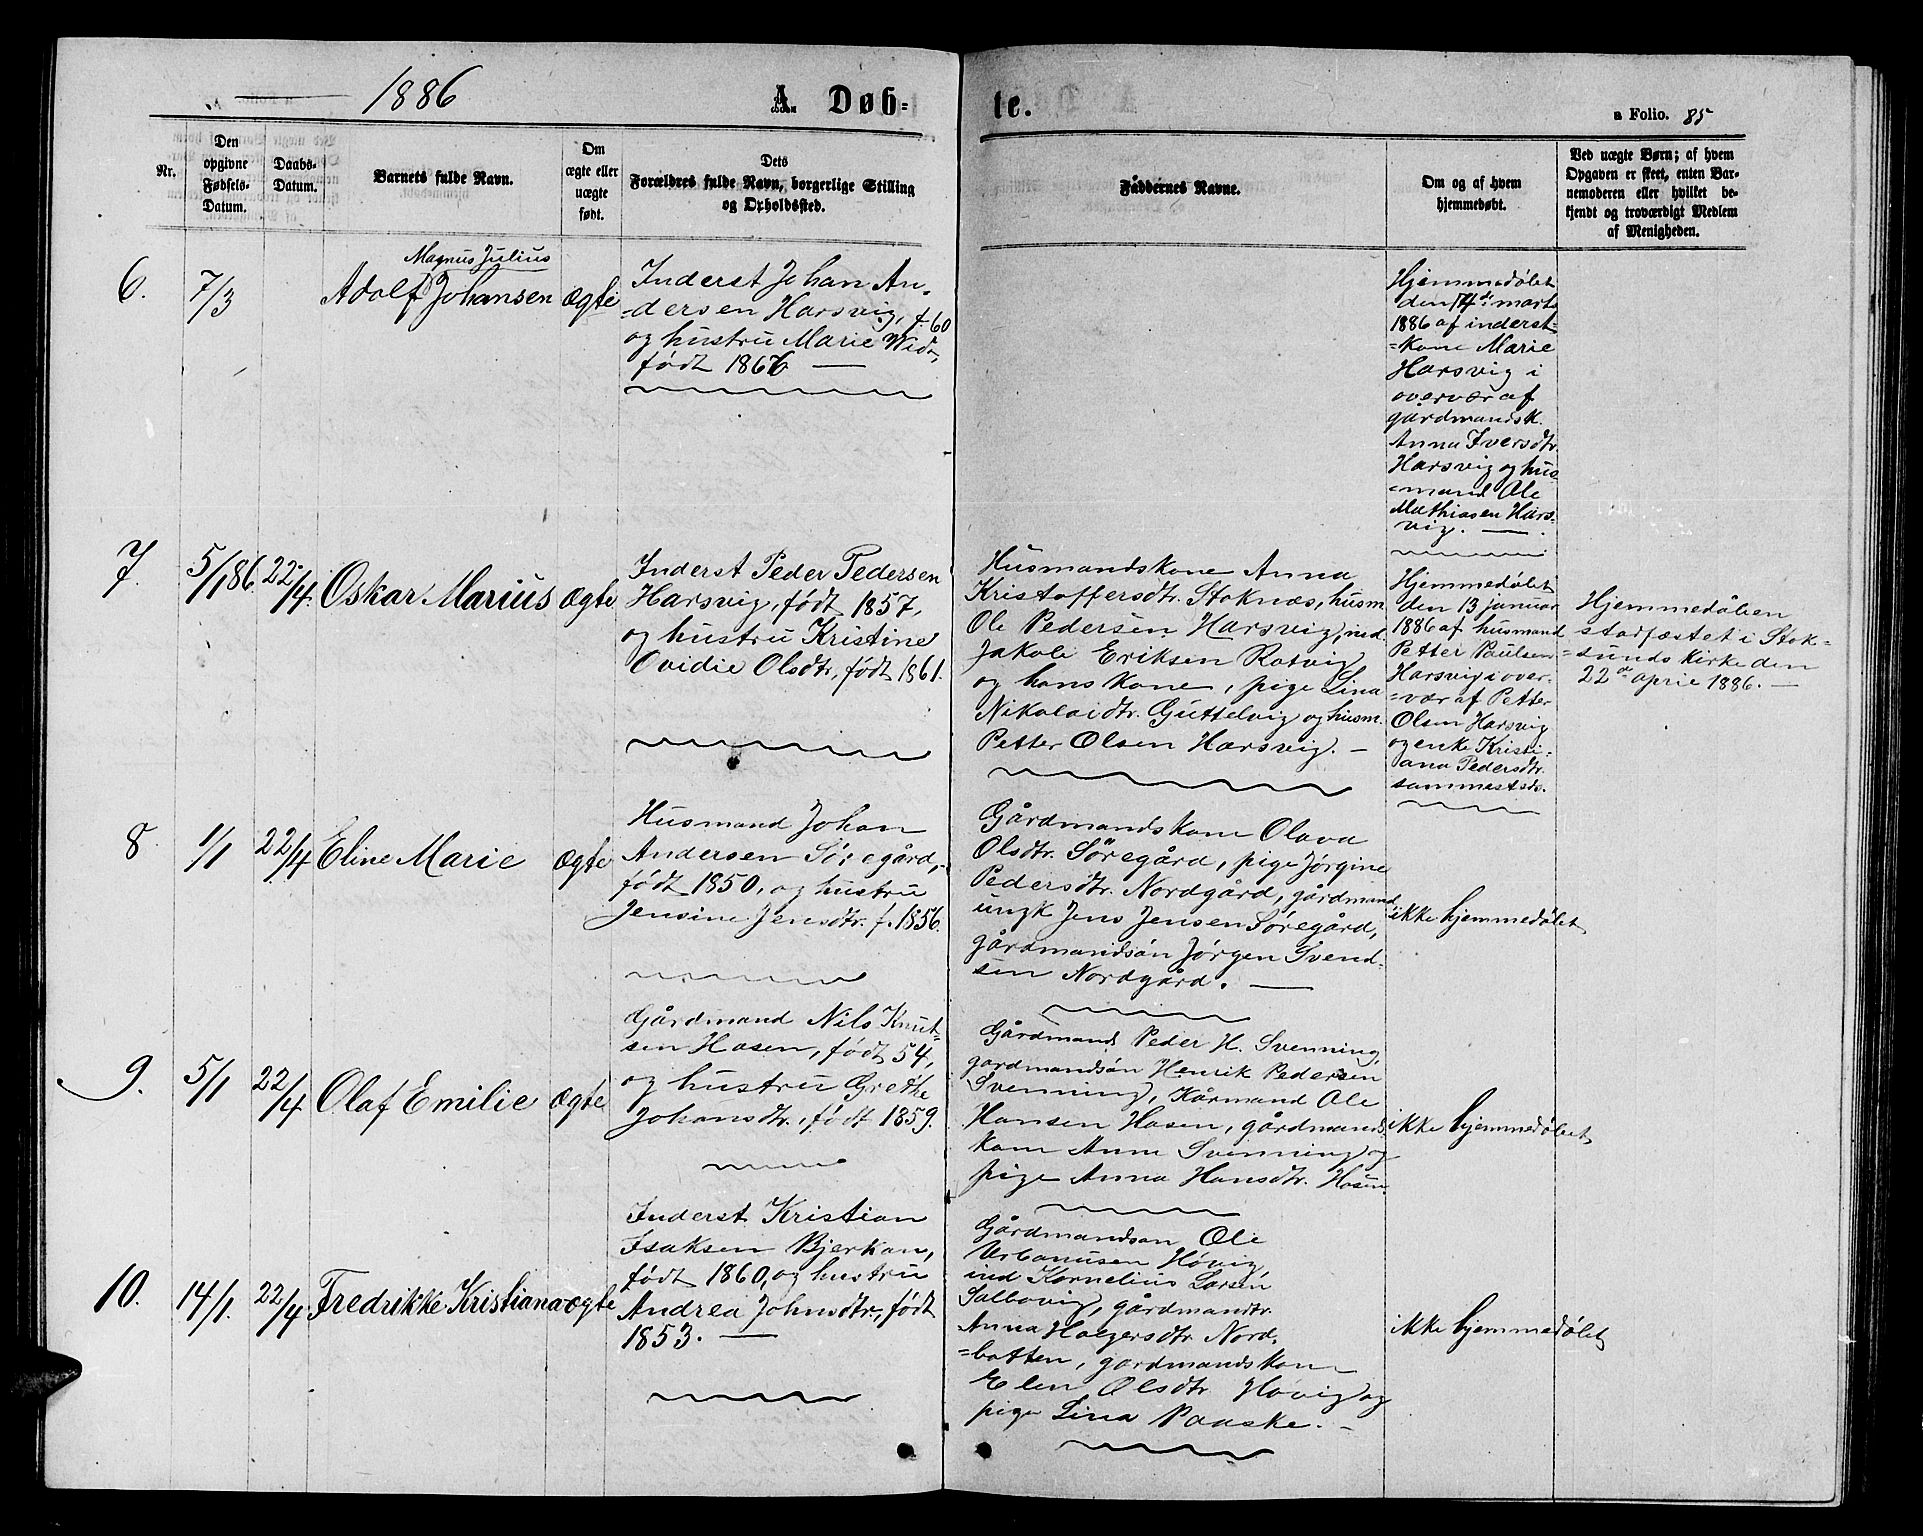 1886
A. Døb-
te.
a Folio. 85
Nr.
Den
opgivne
Fødsels-
Datum.
Daabs-
Datum.
Barnets fulde Navn.
Om
ægte eller
uægte
født.
Dets
Forældres fulde Navn, borgerlige Stilling
og Opholdssted.
Faddernes Navne.
Om og af hvem
hjemmedøbt.
Ved uægte Børn; af hvem
Opgaven er skeet, enten Bar-
nemoderen eller hvilket be-
kjendt og troværdigt Medlem
af Menigheden.
6.
7/3
Magnus Julius
Adolf Johansen
ægte
Inderst Johan An-
-dersen Harsvig, f. 60
og hustru Marie
født 1866 —
Hjemmedøbt
den 14de marts
1886 af inderst-
-kone Marie
Harsvig i
overvær af
gårdmandsk.
Anna Iversdtr.
Harsvig og hus
-mand Ole
Mathiasen Hars-
vig. —
7.
5/1 86.
22/4.
Oskar Marius
ægte
Inderst Peder Pedersen
Harsvig, født 1857,
og hustru Kristine
Ovidie Olsdtr, født 1861.
Husmandskone Anna
Kristoffersdtr. Stoknæs, husm.
Ole Pedersen Harsvig, ind.
Jakob Eriksen Ratvig
og hans kone, pige Lina
Nikolaidtr. Guttelvig og husm.
Petter Olsen Harsvig. —
Hjemmedøbt
den 13 januar
1886 af husmand
Petter Paulsen
Harsvig i over-
=vær af Petter
Olsen Harsvig
og enke Kristi-
ana Pedersdtr.
sammestds.
Hjemmedåben
stadfæstet i Stok-
=sunds kirke den
22de april 1886. —
8.
1/1
22/4
Eline Marie
ægte
Husmand Johan
Andersen Søregård,
født 1850, og hustru
Jensine Jensdtr. f. 1856.
Gårdmandskone Olava
Olsdtr. Søregård, pige Jørgine
Pedersdtr. Nordgård, gårdmand
ungk Jens Jensen Søregård,
gårdmandsøn Jørgen Svend-
sen Nordgård. —
ikke hjemmedøbt
9.
5/1
22/4
Olaf Emilie
ægte
Gårdmand Nils Knut-
sen Hasen, født 54,
og hustru Grethe
Johansdtr., født 1859.
Gårdmand Peder H. Svenning,
gardmandsøn Henrik Pedersen
Svenning, Kårmand Ole
Hansen Hasen, gårdmands-
kone Anne Svenning og
pige Anna Hansdtr. Hasen.
ikke hjemmedøbt
10.
14/1.
22/4
Fredrikke Kristiana
ægte
Inderst Kristian
Isaksen Bjerkan,
født 1860, og hustru
Andrea Johnsdtr., født
1853. —
Gårdmandsøn Ole
Urbanusen Høvig,
ind Kornelius Larsen
Salbovig, gårdmandtr.
Anna Holgersdtr. Nord-
=botten, gardmandskone
Elen Olsdtr Høvig og
pige Lina Paaske. —
ikke hjemmedøbt